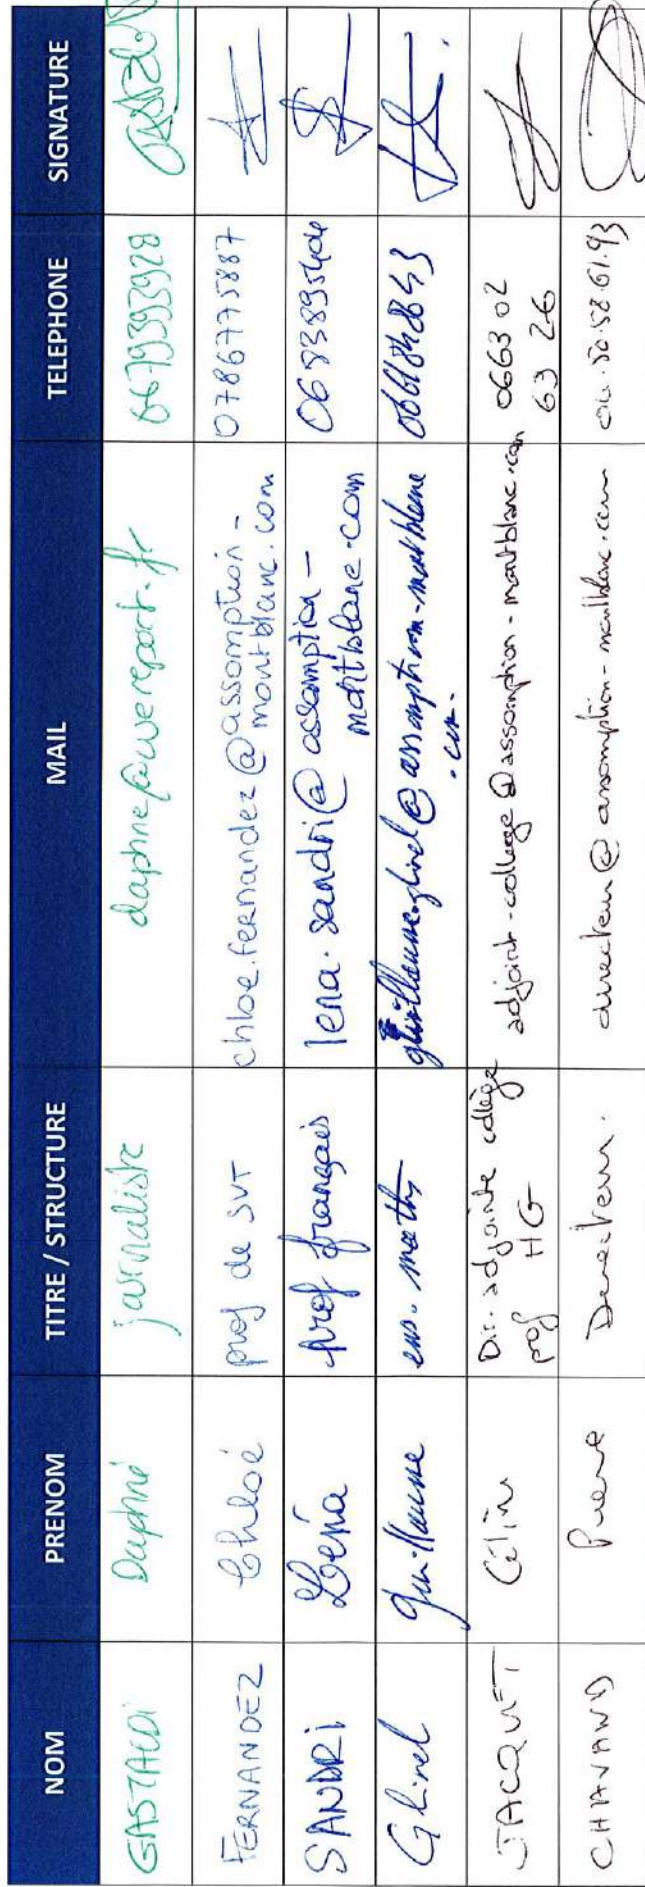 NOM PRENOM TITRE / STRUCTURE MAIL TELEPHONE SIGNATURE
GASTALDI Daphné journaliste daphne@wereport.fr 0679393928
FERNANDEZ Chloé prof de SVT chloe.fernandez@assomption-
montblanc.com 0786775887
SANDRI Léna prof français lena.sandri@assomption-
montblanc.com 0683895404
Glinel Guillaume ens. maths guillaume.glinel@assomption-montblanc
.com
JACQUET Céline Dir. adjointe collège adjoint-college@assomption-montblanc.com 066302
prof HG 63 26
CHAVAND Pierre Directeur. directeur@assomption-montblanc.com 04.50.58.61.93